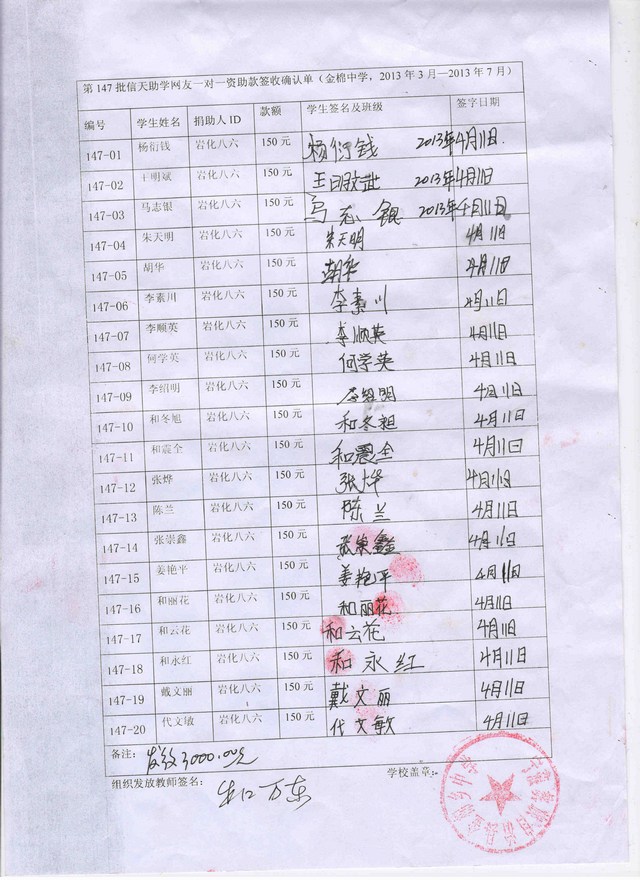 第147批信天助学网友一对一资助款签收确认单（金棉中学，2013年3月—2013年7月）
编号 学生姓名 捐助人ID 款额 学生签名及班级 签字日期
147-01 杨衍钱 岩化八六 150元 杨衍钱 2013年4月11日
147-02 王明斌 岩化八六 150元 王明斌 2013年4月11日
147-03 马志银 岩化八六 150元 马志银 2013年4月11日
147-04 朱天明 岩化八六 150元 朱天明 4月11日
147-05 胡华 岩化八六 150元 胡华 4月11日
147-06 李素川 岩化八六 150元 李素川 4月11日
147-07 李顺英 岩化八六 150元 李顺英 4月11日
147-08 何学英 岩化八六 150元 何学英 4月11日
147-09 李绍明 岩化八六 150元 4月11日
147-10 和冬旭 岩化八六 150元 和冬旭 4月11日
147-11 和震全 岩化八六 150元 和震全 4月11日
147-12 张烨 岩化八六 150元 张烨 4月11日
147-13 陈兰 岩化八六 150元 陈兰 4月11日
147-14 张崇鑫 岩化八六 150元 张崇鑫 4月11日
147-15 姜艳平 岩化八六 150元 姜艳平 4月11日
147-16 和丽花 岩化八六 150元 和丽花 4月11日
147-17 和云花 岩化八六 150元 和云花 4月11日
147-18 和永红 岩化八六 150元 和永红 4月11日
147-19 戴文丽 岩化八六 150元 戴文丽 4月11日
147-20 代文敏 岩化八六 150元 代文敏 4月11日
备注： 发放3000.00元
组织发放教师签名： 学校盖章：